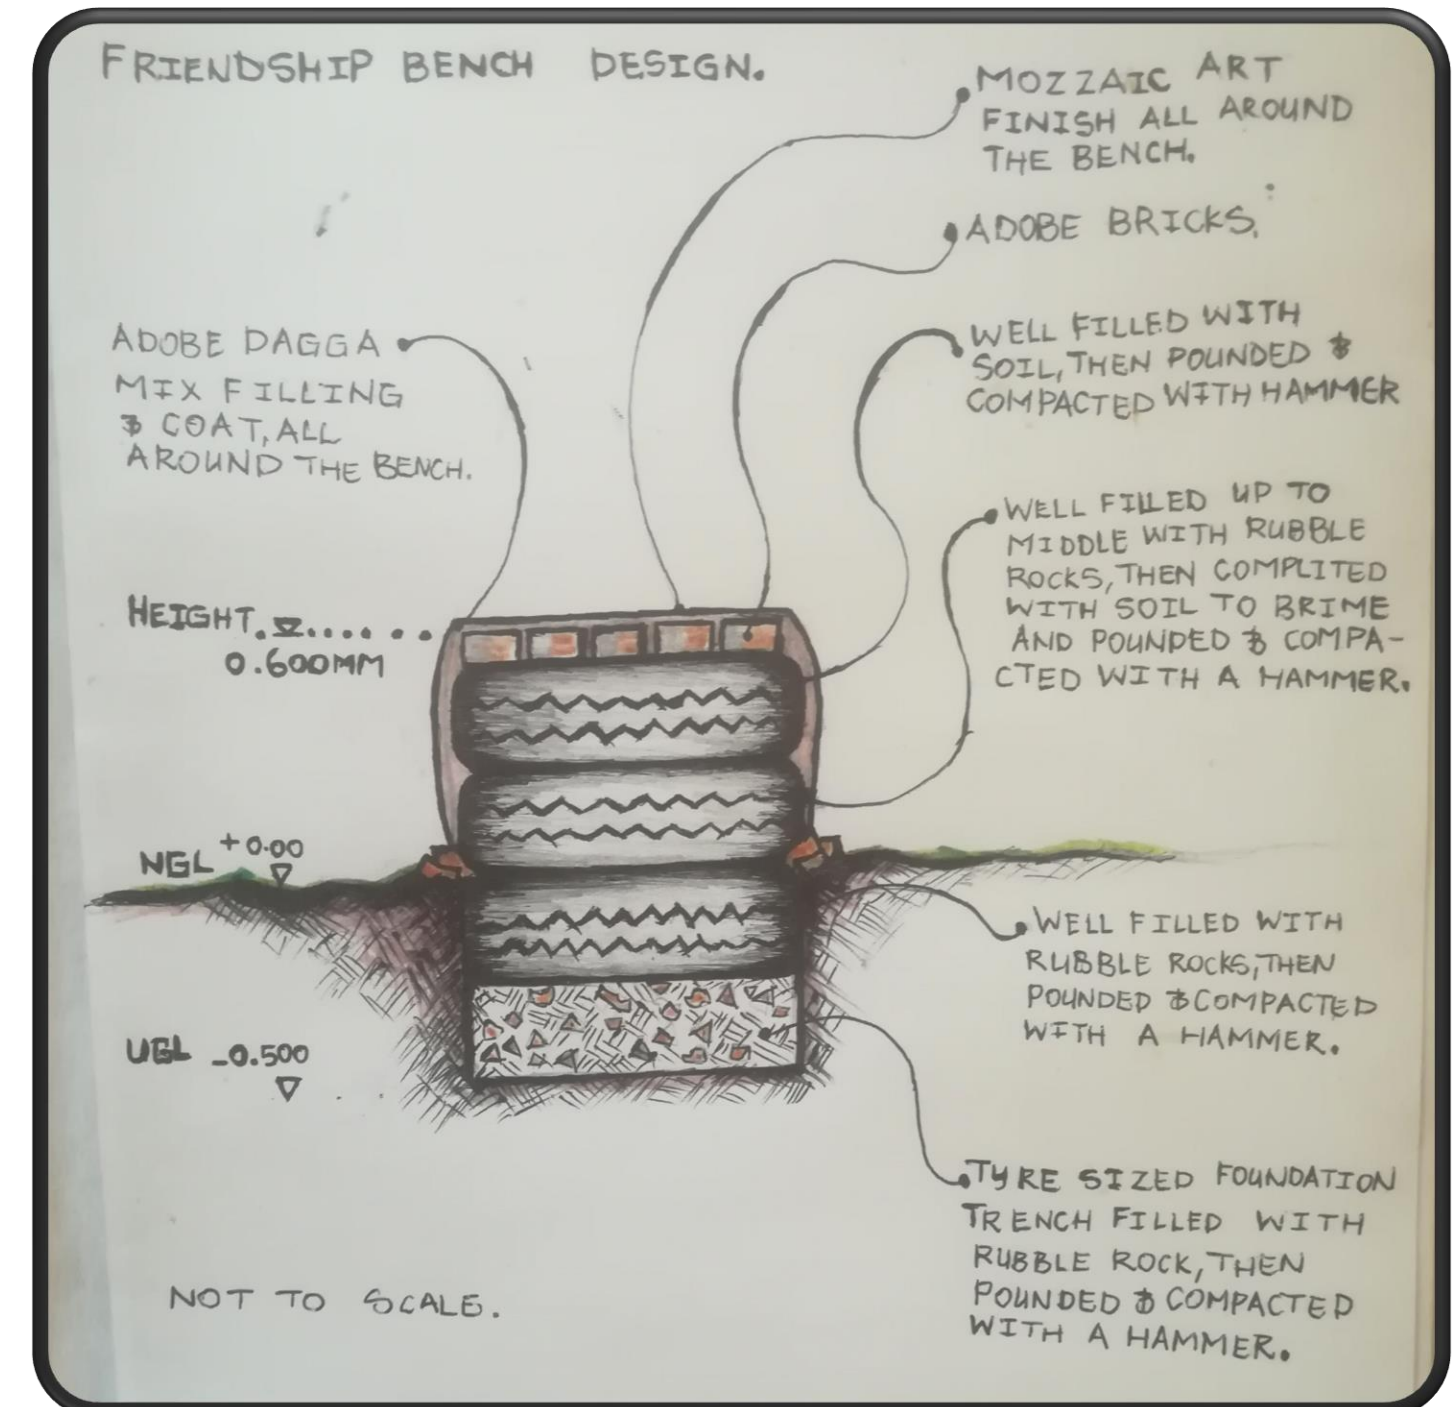 FRIENDSHIP BENCH DESIGN.
MOZZAIC ART
FINISH ALL AROUND
THE BENCH.
ADOBE BRICKS.
WELL FILLED WITH
SOIL, THEN POUNDED &
COMPACTED WITH HAMMER
ADOBE DAGGA
MIX FILLING
& COAT, ALL
AROUND THE BENCH.
WELL FILLED UP TO
MIDDLE WITH RUBBLE
ROCKS, THEN COMPLITED
WITH SOIL TO BRIME
AND POUNDED & COMPA-
CTED WITH A HAMMER.
HEIGHT.
0.600MM
NGL +0.00
WELL FILLED WITH
RUBBLE ROCKS, THEN
POUNDED & COMPACTED
WITH A HAMMER.
UGL -0.500
TYRE SIZED FOUNDATION
TRENCH FILLED WITH
RUBBLE ROCK, THEN
POUNDED & COMPACTED
WITH A HAMMER.
NOT TO SCALE.